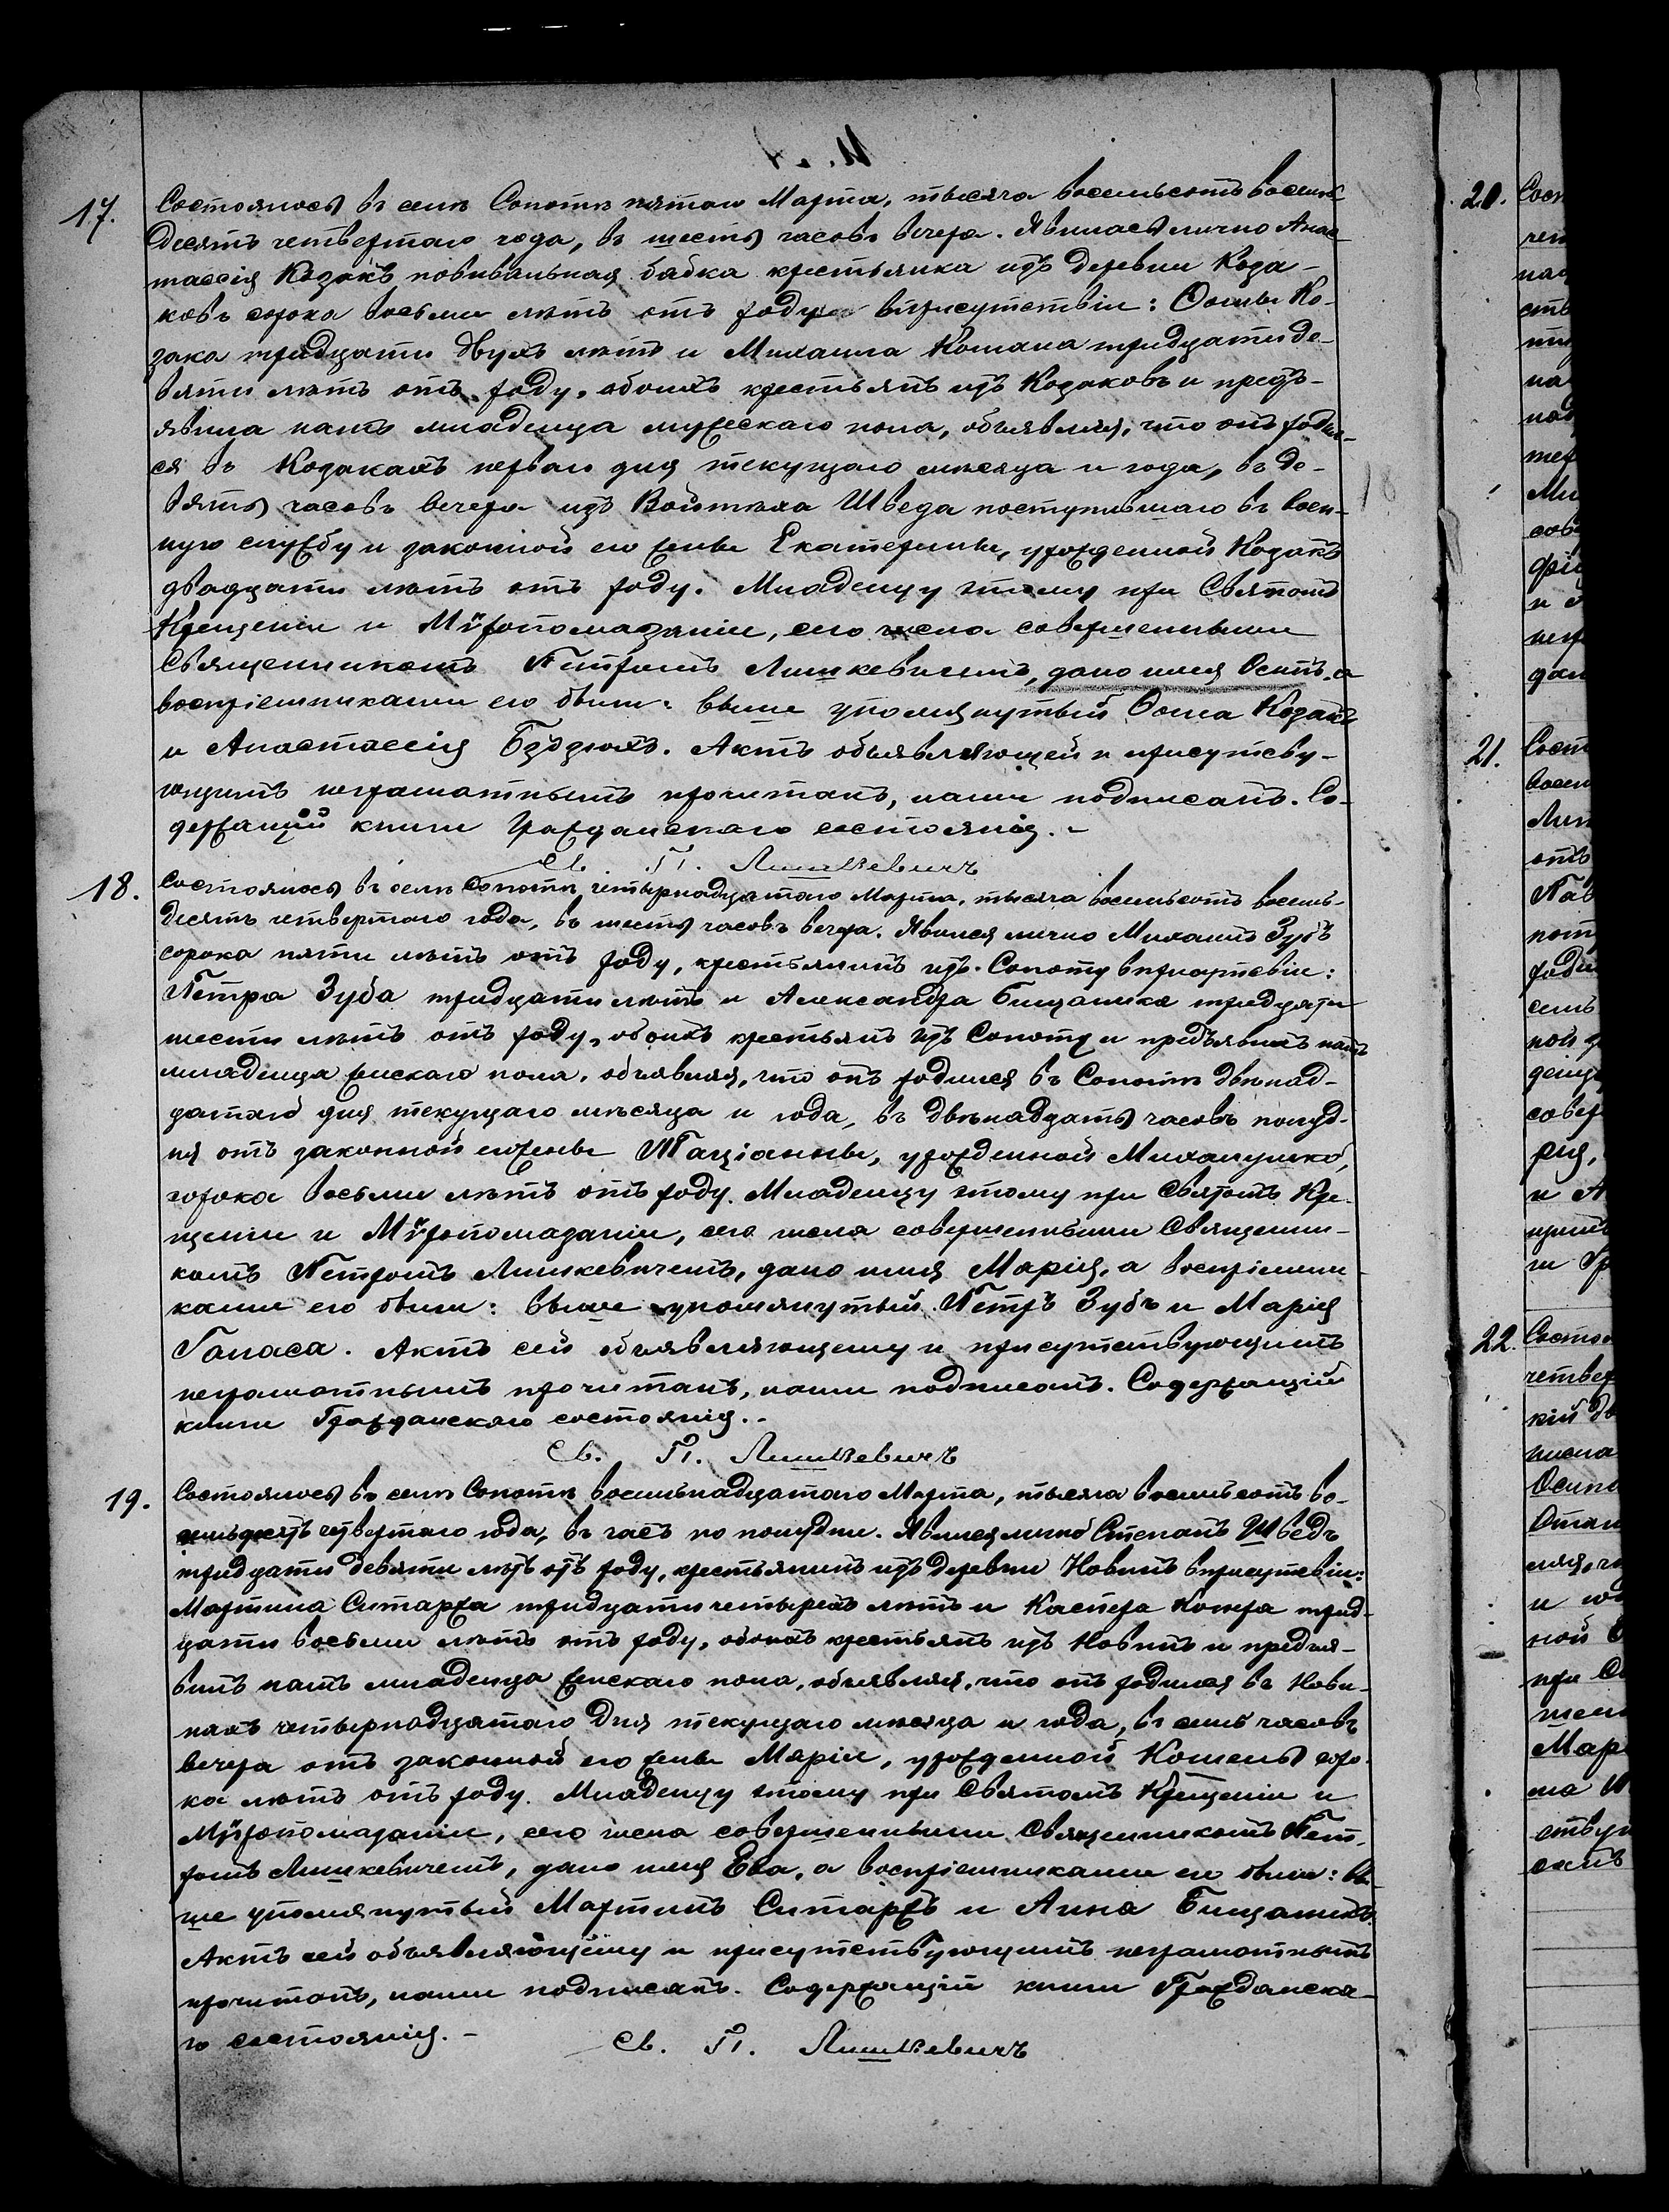 17.
Состоялось въ селѣ Сопотѣ пятаго Марта, тысяча восемьсотъ восемь
десятъ четвертаго года, въ шесть часовъ вечера. Явилась лично Анас-
тассія Козакъ повивальная бабка крестьянка изъ деревни Коза-
ковъ сорока восьми лѣтъ отъ роду въ присутствіи: Ѳомы Ко-
зака тридцати двухъ лѣтъ и Михаила Комана тридцати де-
вяти лѣтъ отъ роду, обоихъ крестьянъ изъ Козаковъ и предъ-
явила намъ младенца мужескаго пола, объявляя, что онъ родил-
ся въ Козакахъ перваго дня текущаго мѣсяца и года, въ де-
вять часовъ вечера изъ Войтѣха Шведа поступившаго въ воен-
ную службу и законной его жены Екатерины, урожденной Козакъ
двадцати лѣтъ отъ роду. Младенцу этому при Святомъ
Крещеніи и Мѵропомазаніи, сего числа совершенными
Священникомъ Петромъ Лишкевичемъ, дано имя Осипъ, а
воспріемниками его были: выше упомянутый Ѳома Козакъ
и Анастассія Бздзюхъ. Актъ объявляющей и присутству-
ющимъ неграмотнымъ прочитанъ, нами подписанъ. Со-
держащій книги Гражданскаго состоянія. -
Св. П. Лишкевичъ
18.
Состоялось въ селѣ Сопотѣ четырнадцатаго Марта, тысяча восемьсотъ восемь-
десятъ четвертаго года, въ шесть часовъ вечера. Явился лично Михаилъ Зубъ
сорока пяти лѣтъ отъ роду, крестьянинъ изъ Сопоту въ присутствіи:
Петра Зуба тридцати лѣтъ и Александра Бищаника тридцати
шести лѣтъ отъ роду, обоихъ крестьянъ изъ Сопоту и предъявилъ намъ
младенца женскаго пола, объявляя, что онъ родился въ Сопотѣ двѣнад-
цатаго дня текущаго мѣсяца и года, въ двѣнадцать часовъ полуд-
ня отъ законной его жены Таціанны, урожденной Михалушко,
сорока восьми лѣтъ отъ роду. Младенцу этому при Святомъ Кре-
щеніи и Мѵропомазаніи, сего числа совершенными Священни-
комъ Петромъ Лишкевичемъ, дано имя Марія, а воспріемни-
ками его были: выше упомянутый Петръ Зубъ и Марія
Гапаса. Актъ сей объявляющему и присутствующимъ
неграмотнымъ прочитанъ, нами подписанъ. Содержащій
книги Гражданскаго состоянія. -
Св. П. Лишкевичъ
19.
Состоялось въ селѣ Сопотѣ восемьнадцатаго Марта, тысяча восемьсотъ во-
семьдесятъ четвертаго года, въ часъ по полудни. Явился лично Степанъ Шведъ
тридцати девяти лѣтъ отъ роду, крестьянинъ изъ деревни Новинъ въ присутствіи:
Мартина Ситаржа тридцати четырехъ лѣтъ и Каспера Кожра трид-
цати восьми лѣтъ отъ роду, обоихъ крестьянъ изъ Новинъ и предъя-
вилъ намъ младенца женскаго пола, объявляя, что онъ родился въ Нови-
нахъ четырнадцатаго дня текущаго мѣсяца и года, въ семь часовъ
вечера отъ законной его жены Маріи, урожденной Кошель соро-
ка лѣтъ отъ роду. Младенцу этому при Святомъ Крещеніи и
Мѵропомазаніи, сего числа совершенными Священникомъ Пет-
ромъ Лишкевичемъ, дано имя Ева, а воспріемниками его были: вы-
ше упомянутый Мартинъ Ситаржъ и Анна Бищаникъ.
Актъ сей объявляющему и присутствующимъ неграмотнымъ
прочитанъ, нами подписанъ. Содержащій книги Гражданска-
го состоянія. -
Св. П. Лишкевичъ
20.
21.
22.